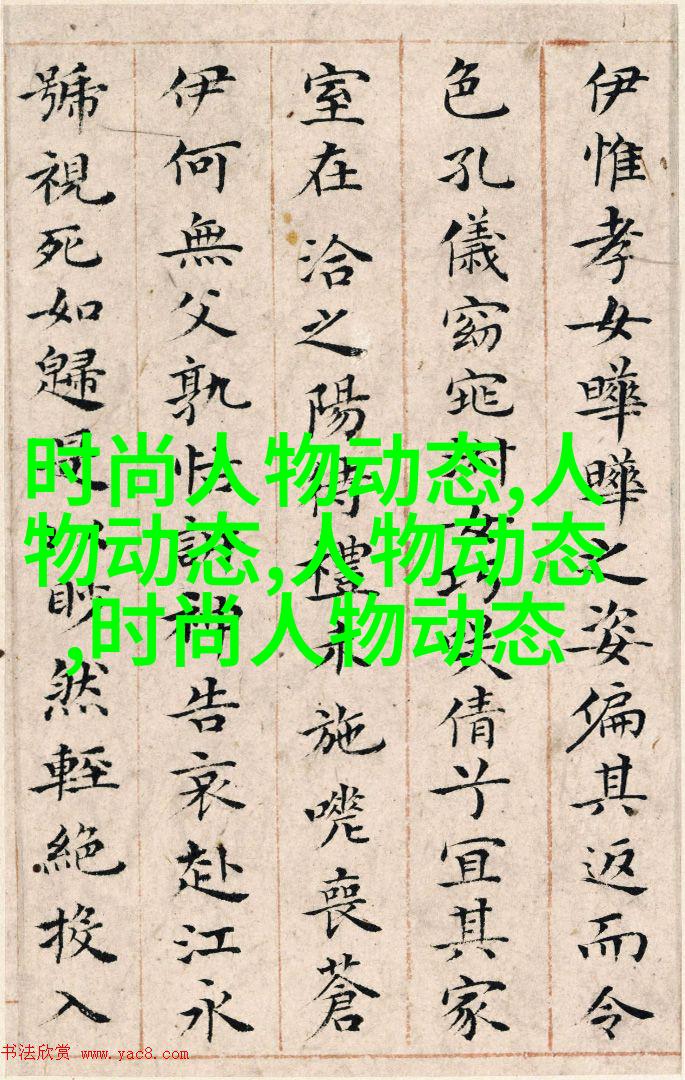 伊惟孝女曄曄之姿偏其返而令
色孔儀窈窕女巧笑倩兮宜其家
室在洽之陽待禮未施嗟喪蒼
伊何無父孰怙訴神告哀赴江永
號視死如歸是以眇然輕絕投入
时尚人物动态,人
物动态,人物动态
,时尚人物动态
书法欣赏 www.yac8.com